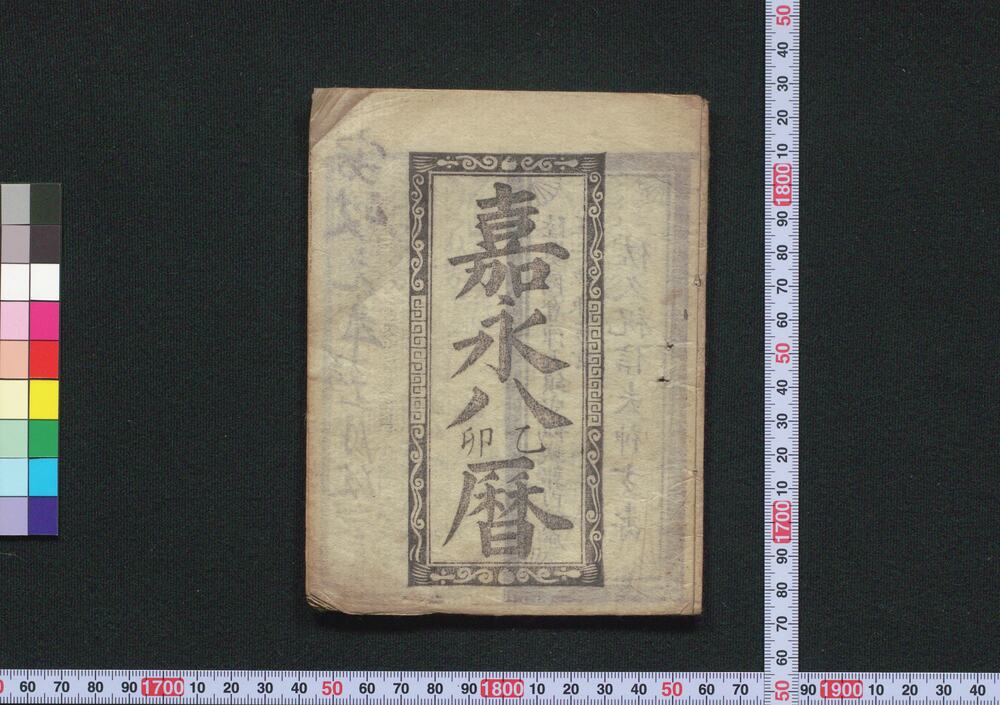 嘉永八乙卯暦
50
40
30
20
10
1800
90
80
70
60
50
40
30
20
10
1700
90
80
70
60
50
60 70 80 90 1700 10 20 30 40 50 60 70 80 90 1800 10 20 30 40 50 60 70 90 1900 10 20 30 40